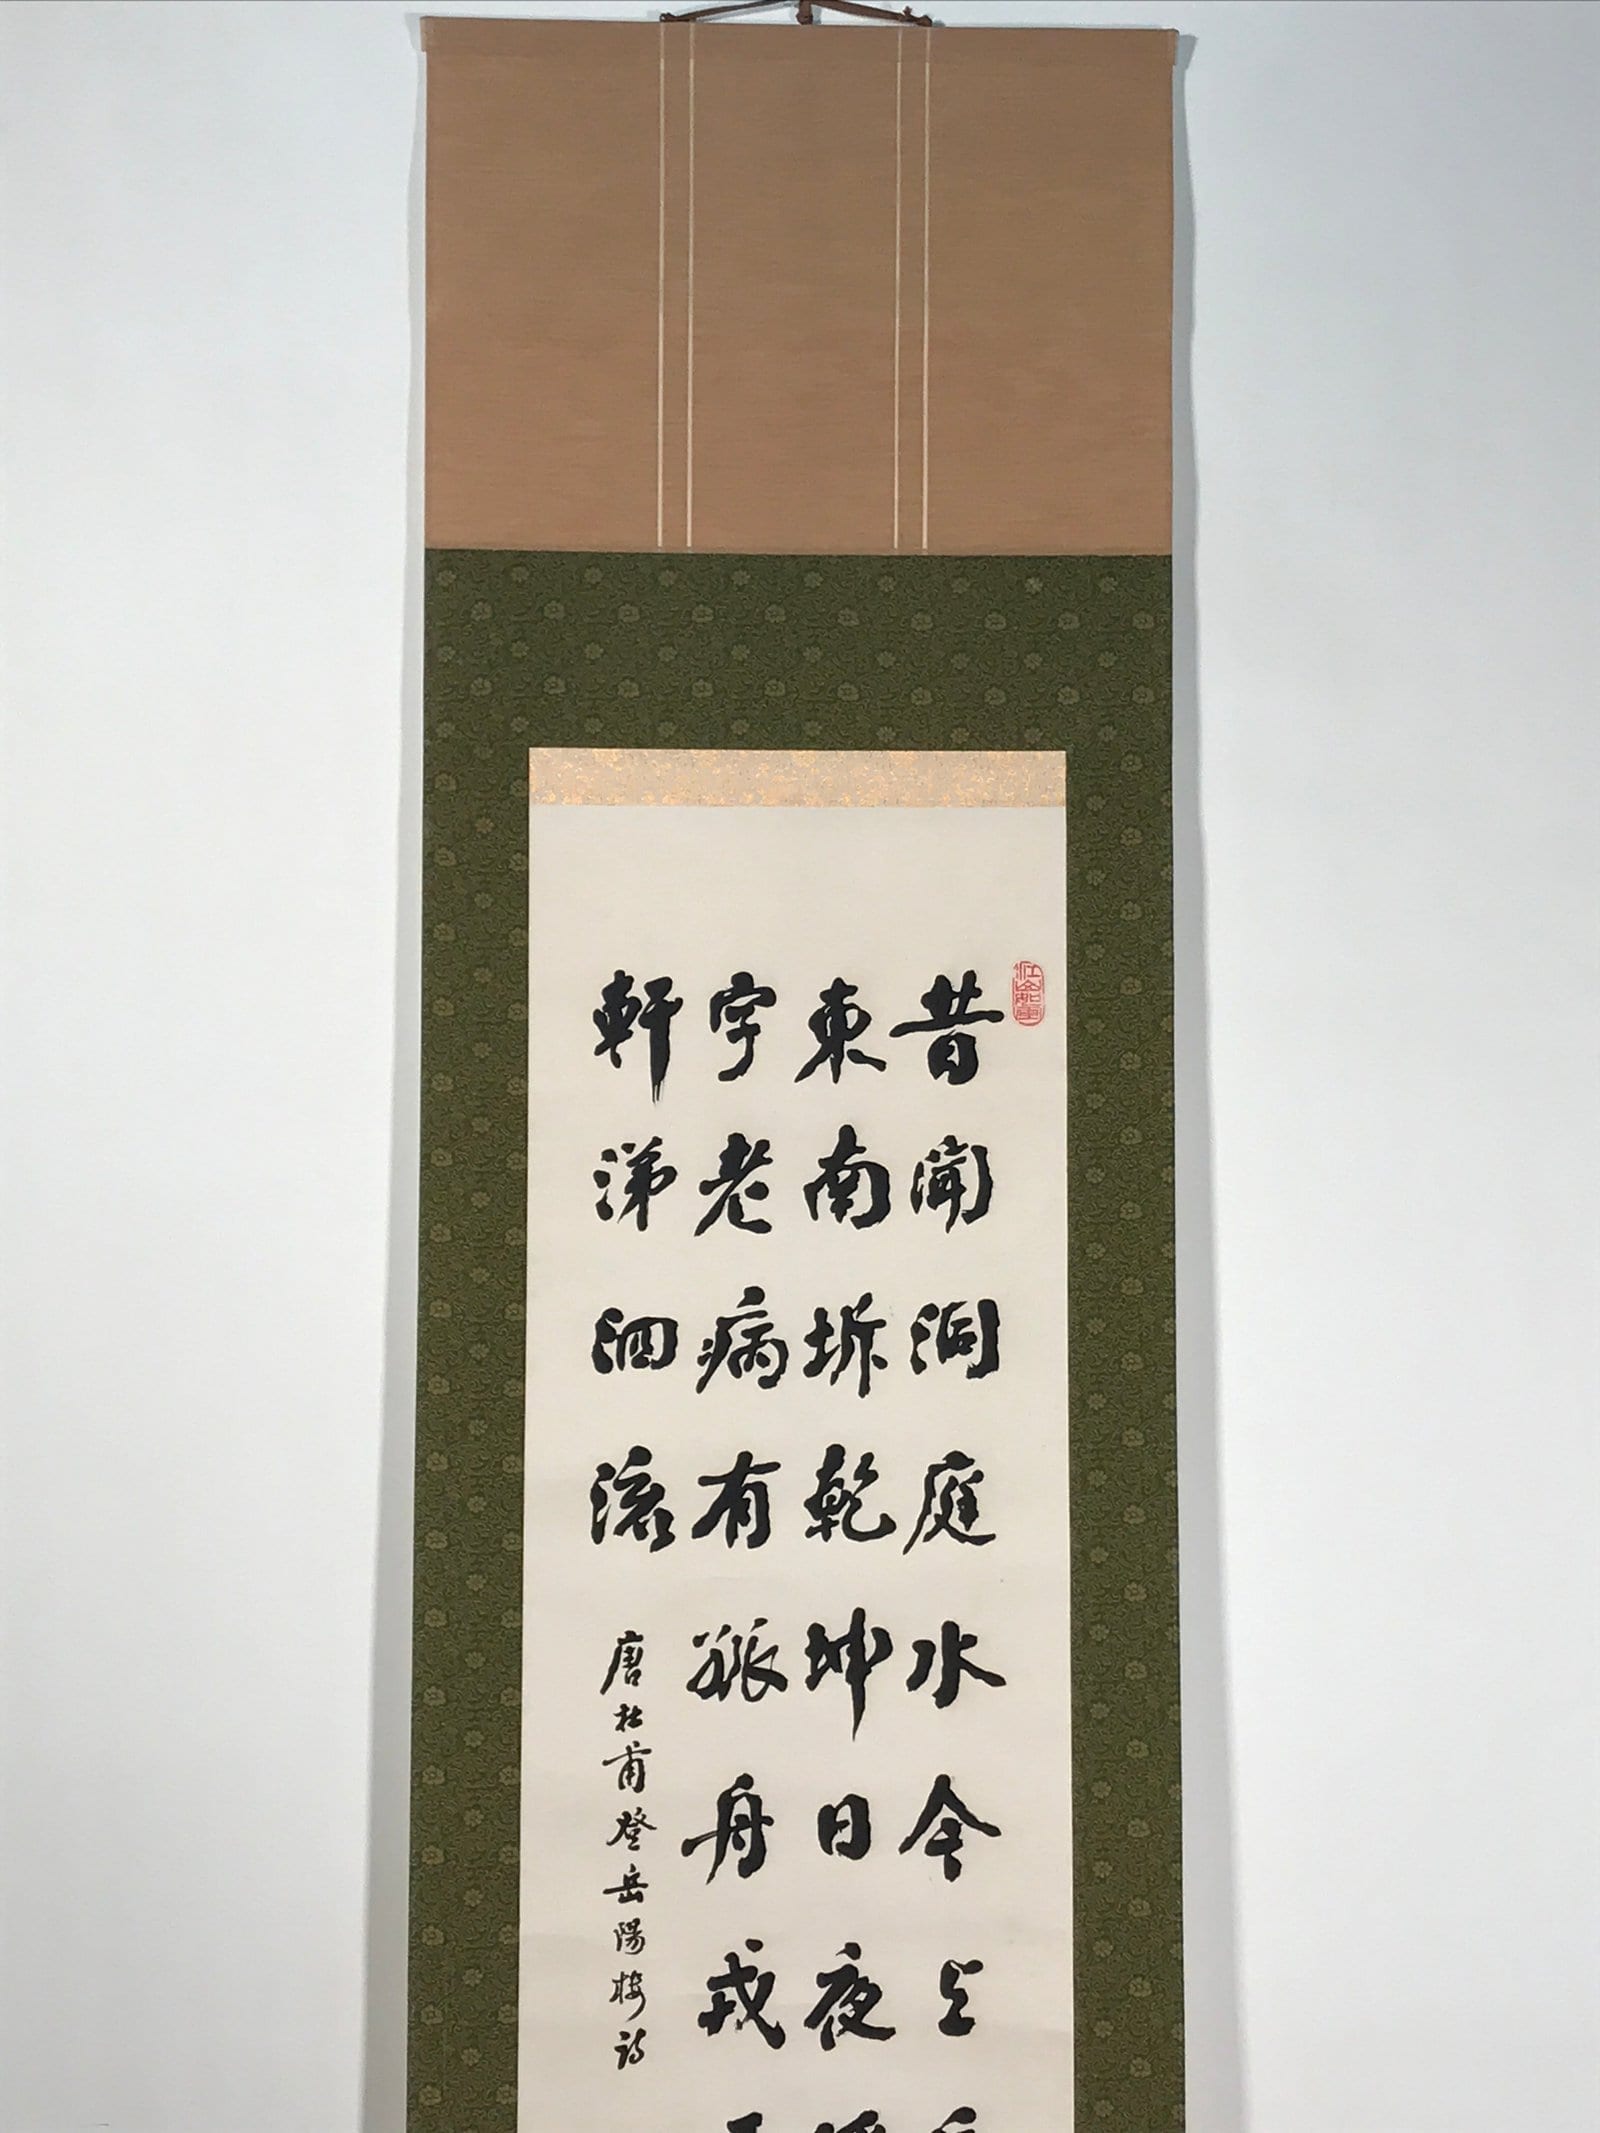 江山如画
昔聞洞庭水今上岳
東南坼乾坤日夜浮
字老病有孤舟戎馬
軒涕泗流
唐杜甫登岳陽樓詩